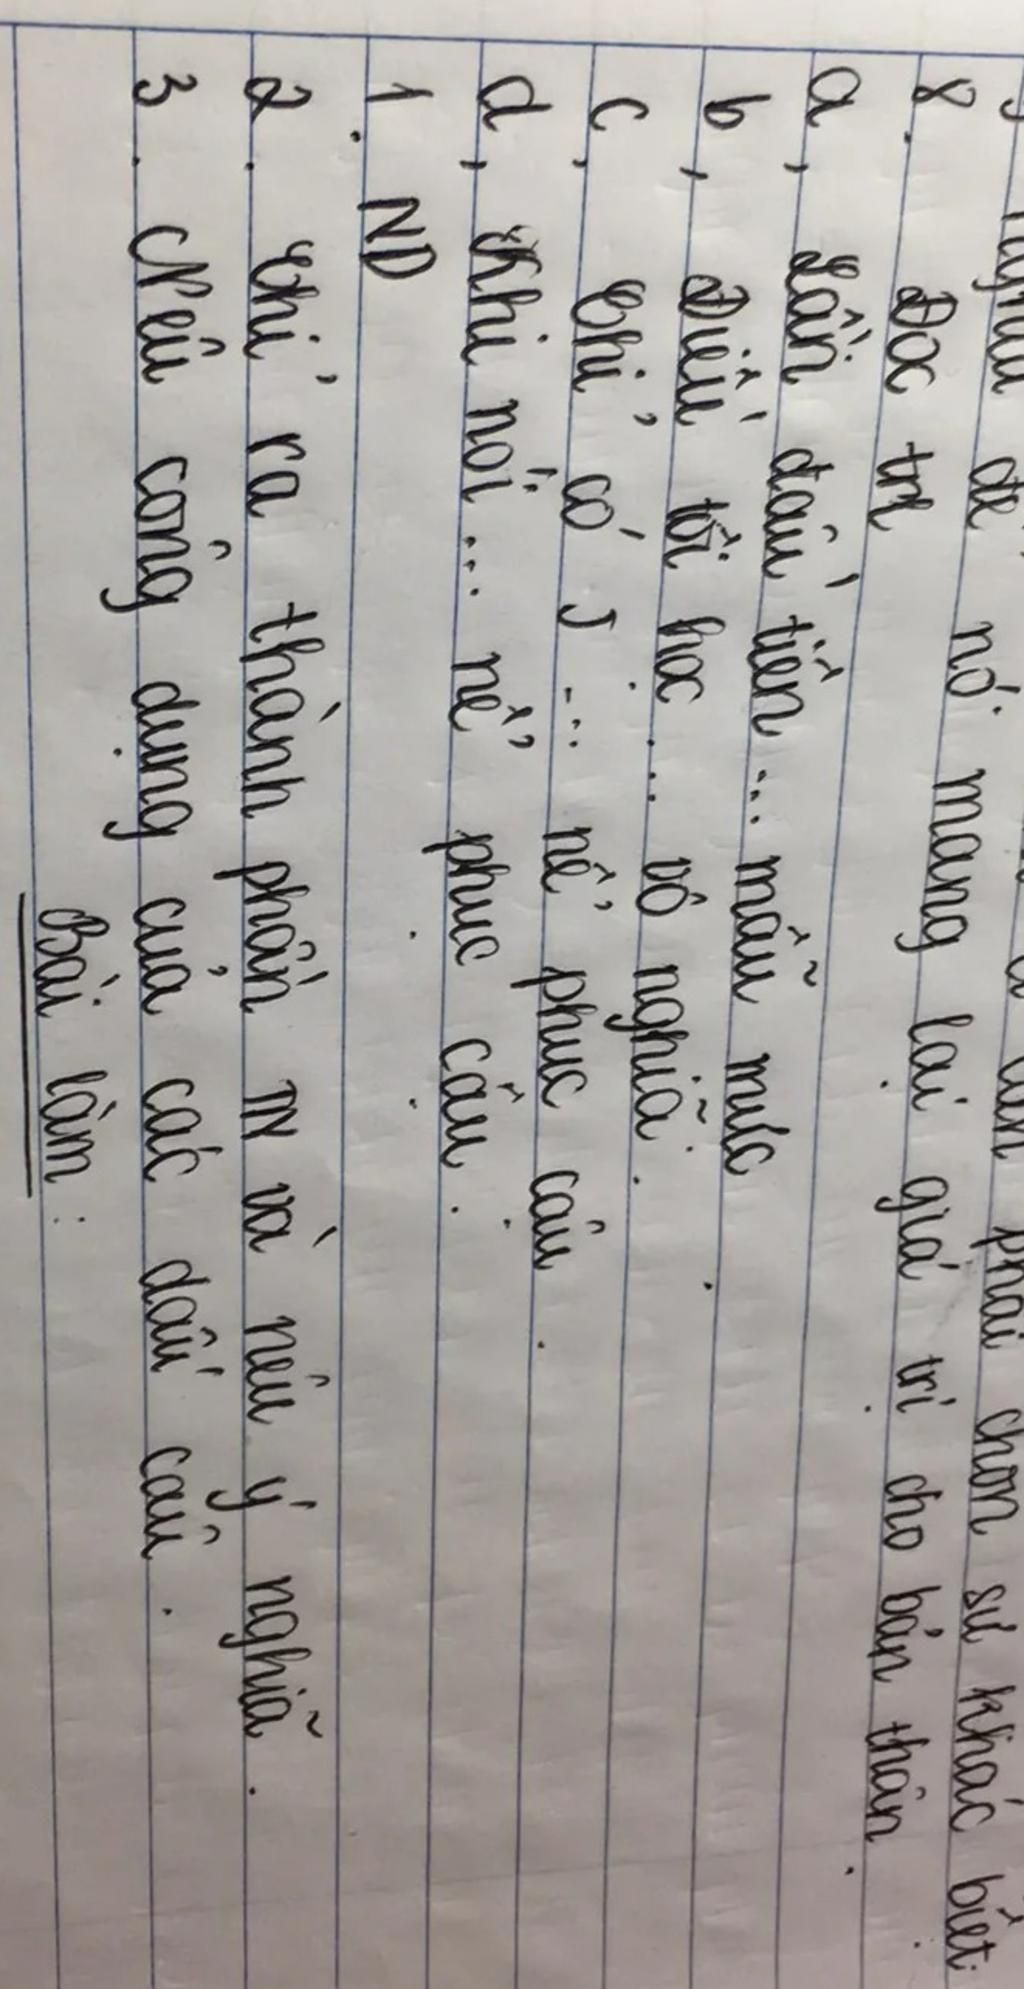 để nó mang lại giá trị cho bản thân.
phải chọn sự khác biệt
8. Đọc trl
a, Lần đầu tiên ... mẫu mực.
b, Điều tôi học ... vô nghĩa.
c, Chỉ có J ... nể phục cậu.
d, Khi nói ... nể phục cậu.
1. ND
2. Chỉ ra thành phần TN và nêu ý nghĩa.
3. Nêu công dụng của các dấu câu.
Bài làm: